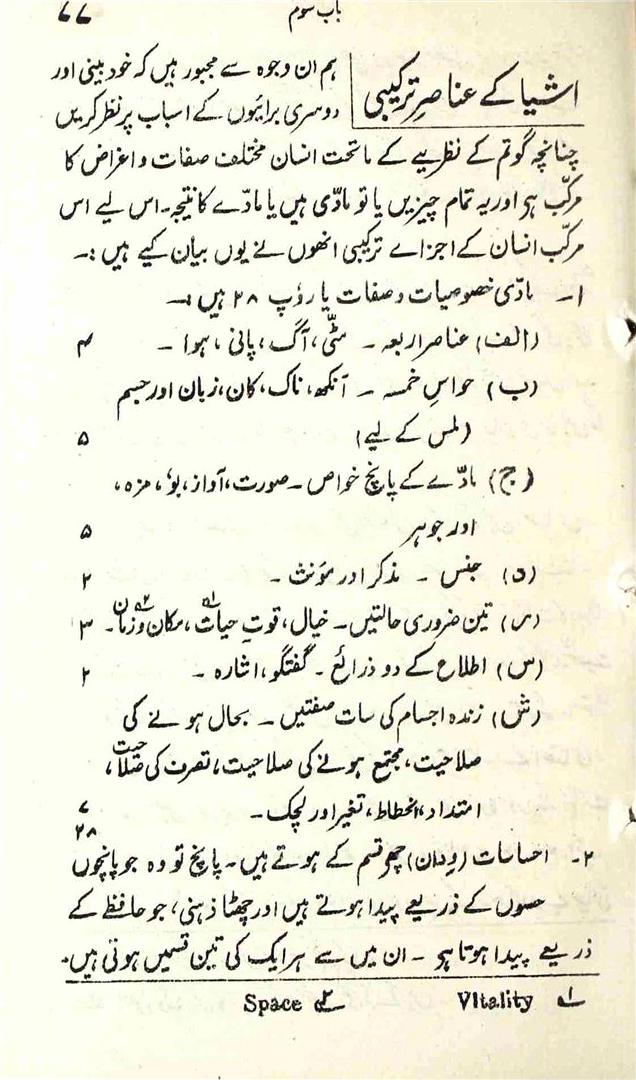 باب سوم ۷۷
اشیا کے عناصرِ ترکیبی
ہم ان وجوہ سے مجبور ہیں کہ خود بینی اور
دوسری برائیوں کے اسباب پر نظر کریں
چنانچہ گوتم کے نظریے کے ماتحت انسان مختلف صفات و اغراض کا
مرکّب ہر اور یہ تمام چیزیں یا تو مادّی ہیں یا مادّے کا نتیجہ۔ اس لیے اس
مرکّب انسان کے اجزاے ترکیبی انھوں نے یوں بیان کیے ہیں :۔
۱۔ مادّی خصوصیات و صفات یا رؤپ ۲۸ ہیں :۔
(الف) عناصر اربعہ ۔ مٹّی، آگ، پانی، ہوا ۔ ۴
(ب) حواسِ خمسہ ۔ آنکھ، ناک، کان، زبان اور جسم
(لمس کے لیے) ۵
(ج) مادّے کے پانچ خواص ۔ صورت، آواز، بوٗ، مزہ،
اور جوہر ۵
(د) جنس ۔ مذکر اور مؤنث ۔ ۲
(ر) تین ضروری حالتیں ۔ خیال، قوتِ حیات۱؎، مکان۲؎ و زمان ۔ ۳
(س) اطلاع کے دو ذرائع ۔ گفتگو، اشارہ ۔ ۲
(ش) زندہ اجسام کی سات صفتیں ۔ بحال ہونے کی
صلاحیت، مجتمع ہونے کی صلاحیت، تصرف کی صلاحیت،
امتداد، انحطاط، تغیر اور لچک ۔ ۷
۲۸
۲۔ احساسات (ودان) چھ قسم کے ہوتے ہیں ۔ پانچ تو وہ جو پانچوں
حسوں کے ذریعے پیدا ہوتے ہیں اور چھٹا ذہنی، جو حافظے کے
ذریعے پیدا ہوتا ہر ۔ ان میں سے ہر ایک کی تین قسمیں ہوتی ہیں ۔
۱؎ Vitality ۲؎ Space